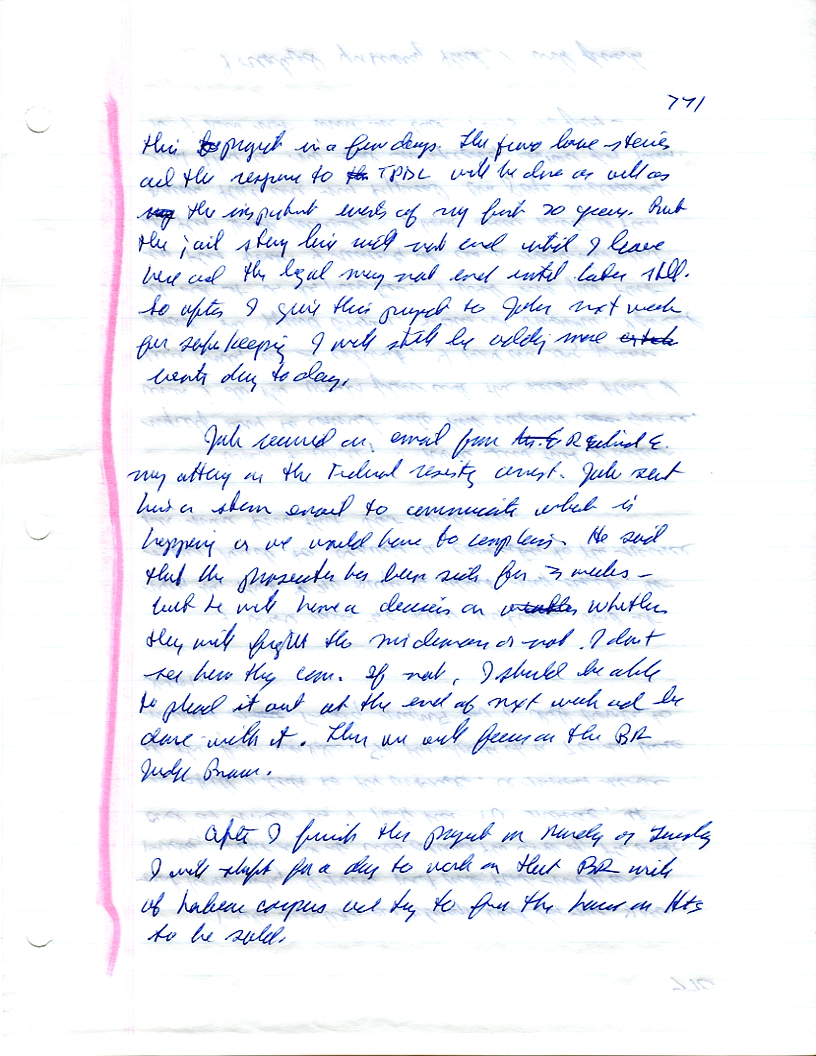 771
this project in a few days. The two love stories
and the response to TPDL will be done as well as
the important events of my first 20 years. But
the jail story line will not end until I leave
here and the legal may not end until later still.
So after I give this project to Julie next week
for safe keeping I will still be adding more
events day to day.
received an email from E.
my attorney on the Federal resisting arrest. sent
him a stern email to communicate what is
happening or we would have to complain. He said
that the prosecutor has been sick for 3 weeks –
but he will have a decision on whether
they will fight the misdemeanor or not. I don't
see how they can. If not, I should be able
to plead it out at the end of next week and be
done with it. Then we will focus on the BR
Judge
After I finish this project on Monday or Tuesday
I will stop for a day to work on that BR writ
of habeas corpus and try to the house on
to be sold.